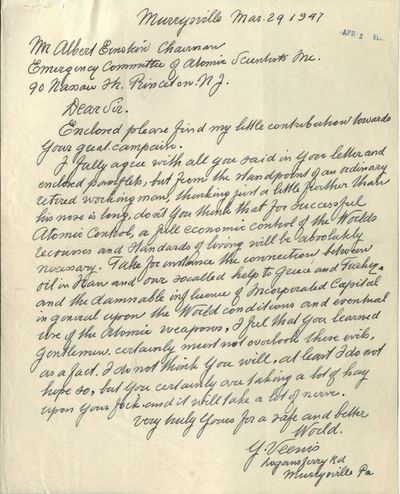 Murrysville Mar. 29 1947
APR 2
Mr Albert Einstein Chairman
Emergency Committee of Atomic Scientists Inc.
90 Nassau St. Princeton. N.J.
Dear Sir.
Enclosed please find my little contribution towards
your great campaign.
I fully agree with all you said in your letter and
enclosed pamflets, but from the standpoint of an ordinary
retired working man, thinking just a little further than
his nose is long, don't you think that for successful
Atomic Control, a full economic control of the Worlds
recourses and standards of living will be absolutely
necessary. Take for instance the connection between
oil in Iran and our socalled help to Greece and Turkey
and the damnable influence of Incorporated Capital
in general upon the World conditions and eventual
use of the Atomic weapons, I feel that you learned
gentlemen, certainly must not overlook these evils,
as a fact. I do not think you will, at least I do not
hope so, but you certainly are taking a lot of hay
upon your fork and it will take a lot of nerve.
Very truly yours for a safe and better
World.
Y. Veenis
Logansferry Rd
Murrysville Pa